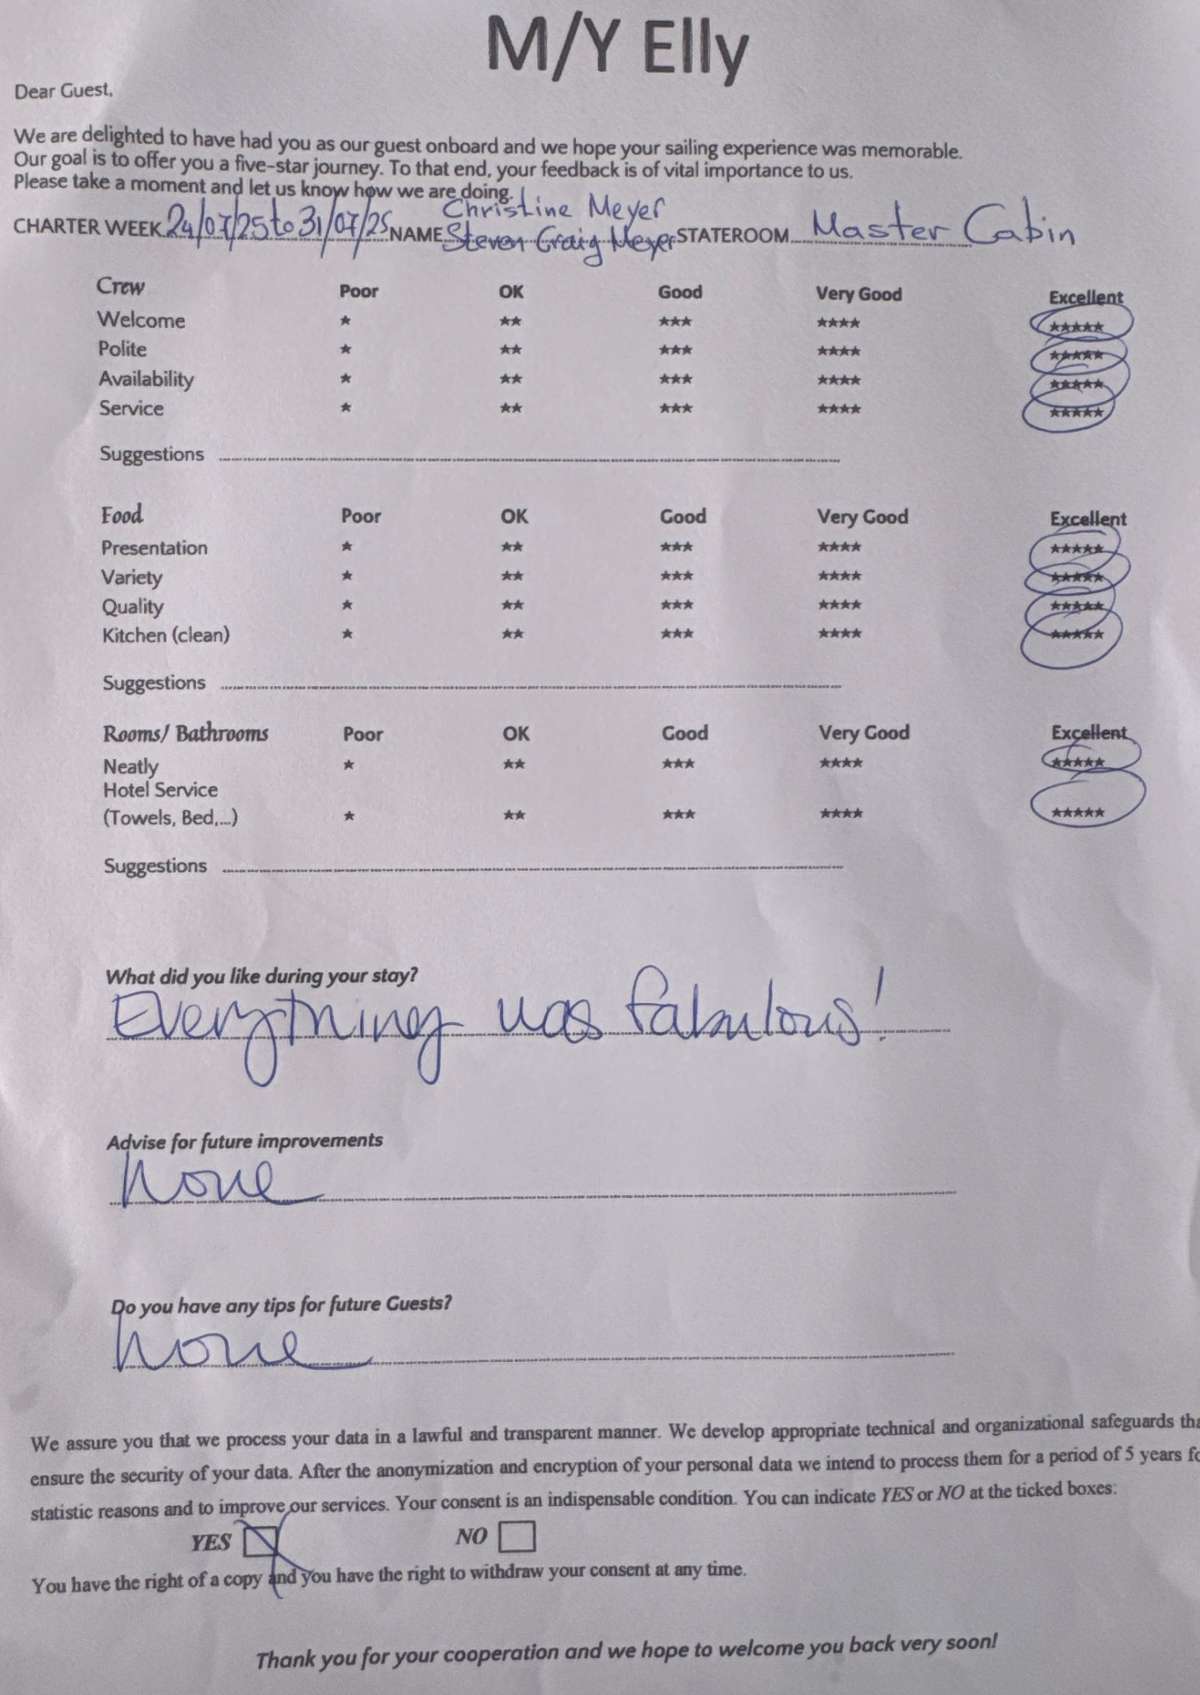 M/Y Elly
Dear Guest,
We are delighted to have had you as our guest onboard and we hope your sailing experience was memorable.
Our goal is to offer you a five-star journey. To that end, your feedback is of vital importance to us.
Please take a moment and let us know how we are doing.
Christine Meyer
CHARTER WEEK 24/07/25 to 31/07/25 NAME Steven Craig Meyer STATEROOM Master Cabin
Crew Poor OK Good Very Good Excellent
Welcome ★ ★★ ★★★ ★★★★ ★★★★★
Polite ★ ★★ ★★★ ★★★★ ★★★★★
Availability ★ ★★ ★★★ ★★★★ ★★★★★
Service ★ ★★ ★★★ ★★★★ ★★★★★
Suggestions
Food Poor OK Good Very Good Excellent
Presentation ★ ★★ ★★★ ★★★★ ★★★★★
Variety ★ ★★ ★★★ ★★★★ ★★★★★
Quality ★ ★★ ★★★ ★★★★ ★★★★★
Kitchen (clean) ★ ★★ ★★★ ★★★★ ★★★★★
Suggestions
Rooms/ Bathrooms Poor OK Good Very Good Excellent
Neatly ★ ★★ ★★★ ★★★★ ★★★★★
Hotel Service
(Towels, Bed,...) ★ ★★ ★★★ ★★★★ ★★★★★
Suggestions
What did you like during your stay?
Everything was fabulous!
Advise for future improvements
None
Do you have any tips for future Guests?
None
We assure you that we process your data in a lawful and transparent manner. We develop appropriate technical and organizational safeguards tha
ensure the security of your data. After the anonymization and encryption of your personal data we intend to process them for a period of 5 years fo
statistic reasons and to improve our services. Your consent is an indispensable condition. You can indicate YES or NO at the ticked boxes:
YES NO
You have the right of a copy and you have the right to withdraw your consent at any time.
Thank you for your cooperation and we hope to welcome you back very soon!